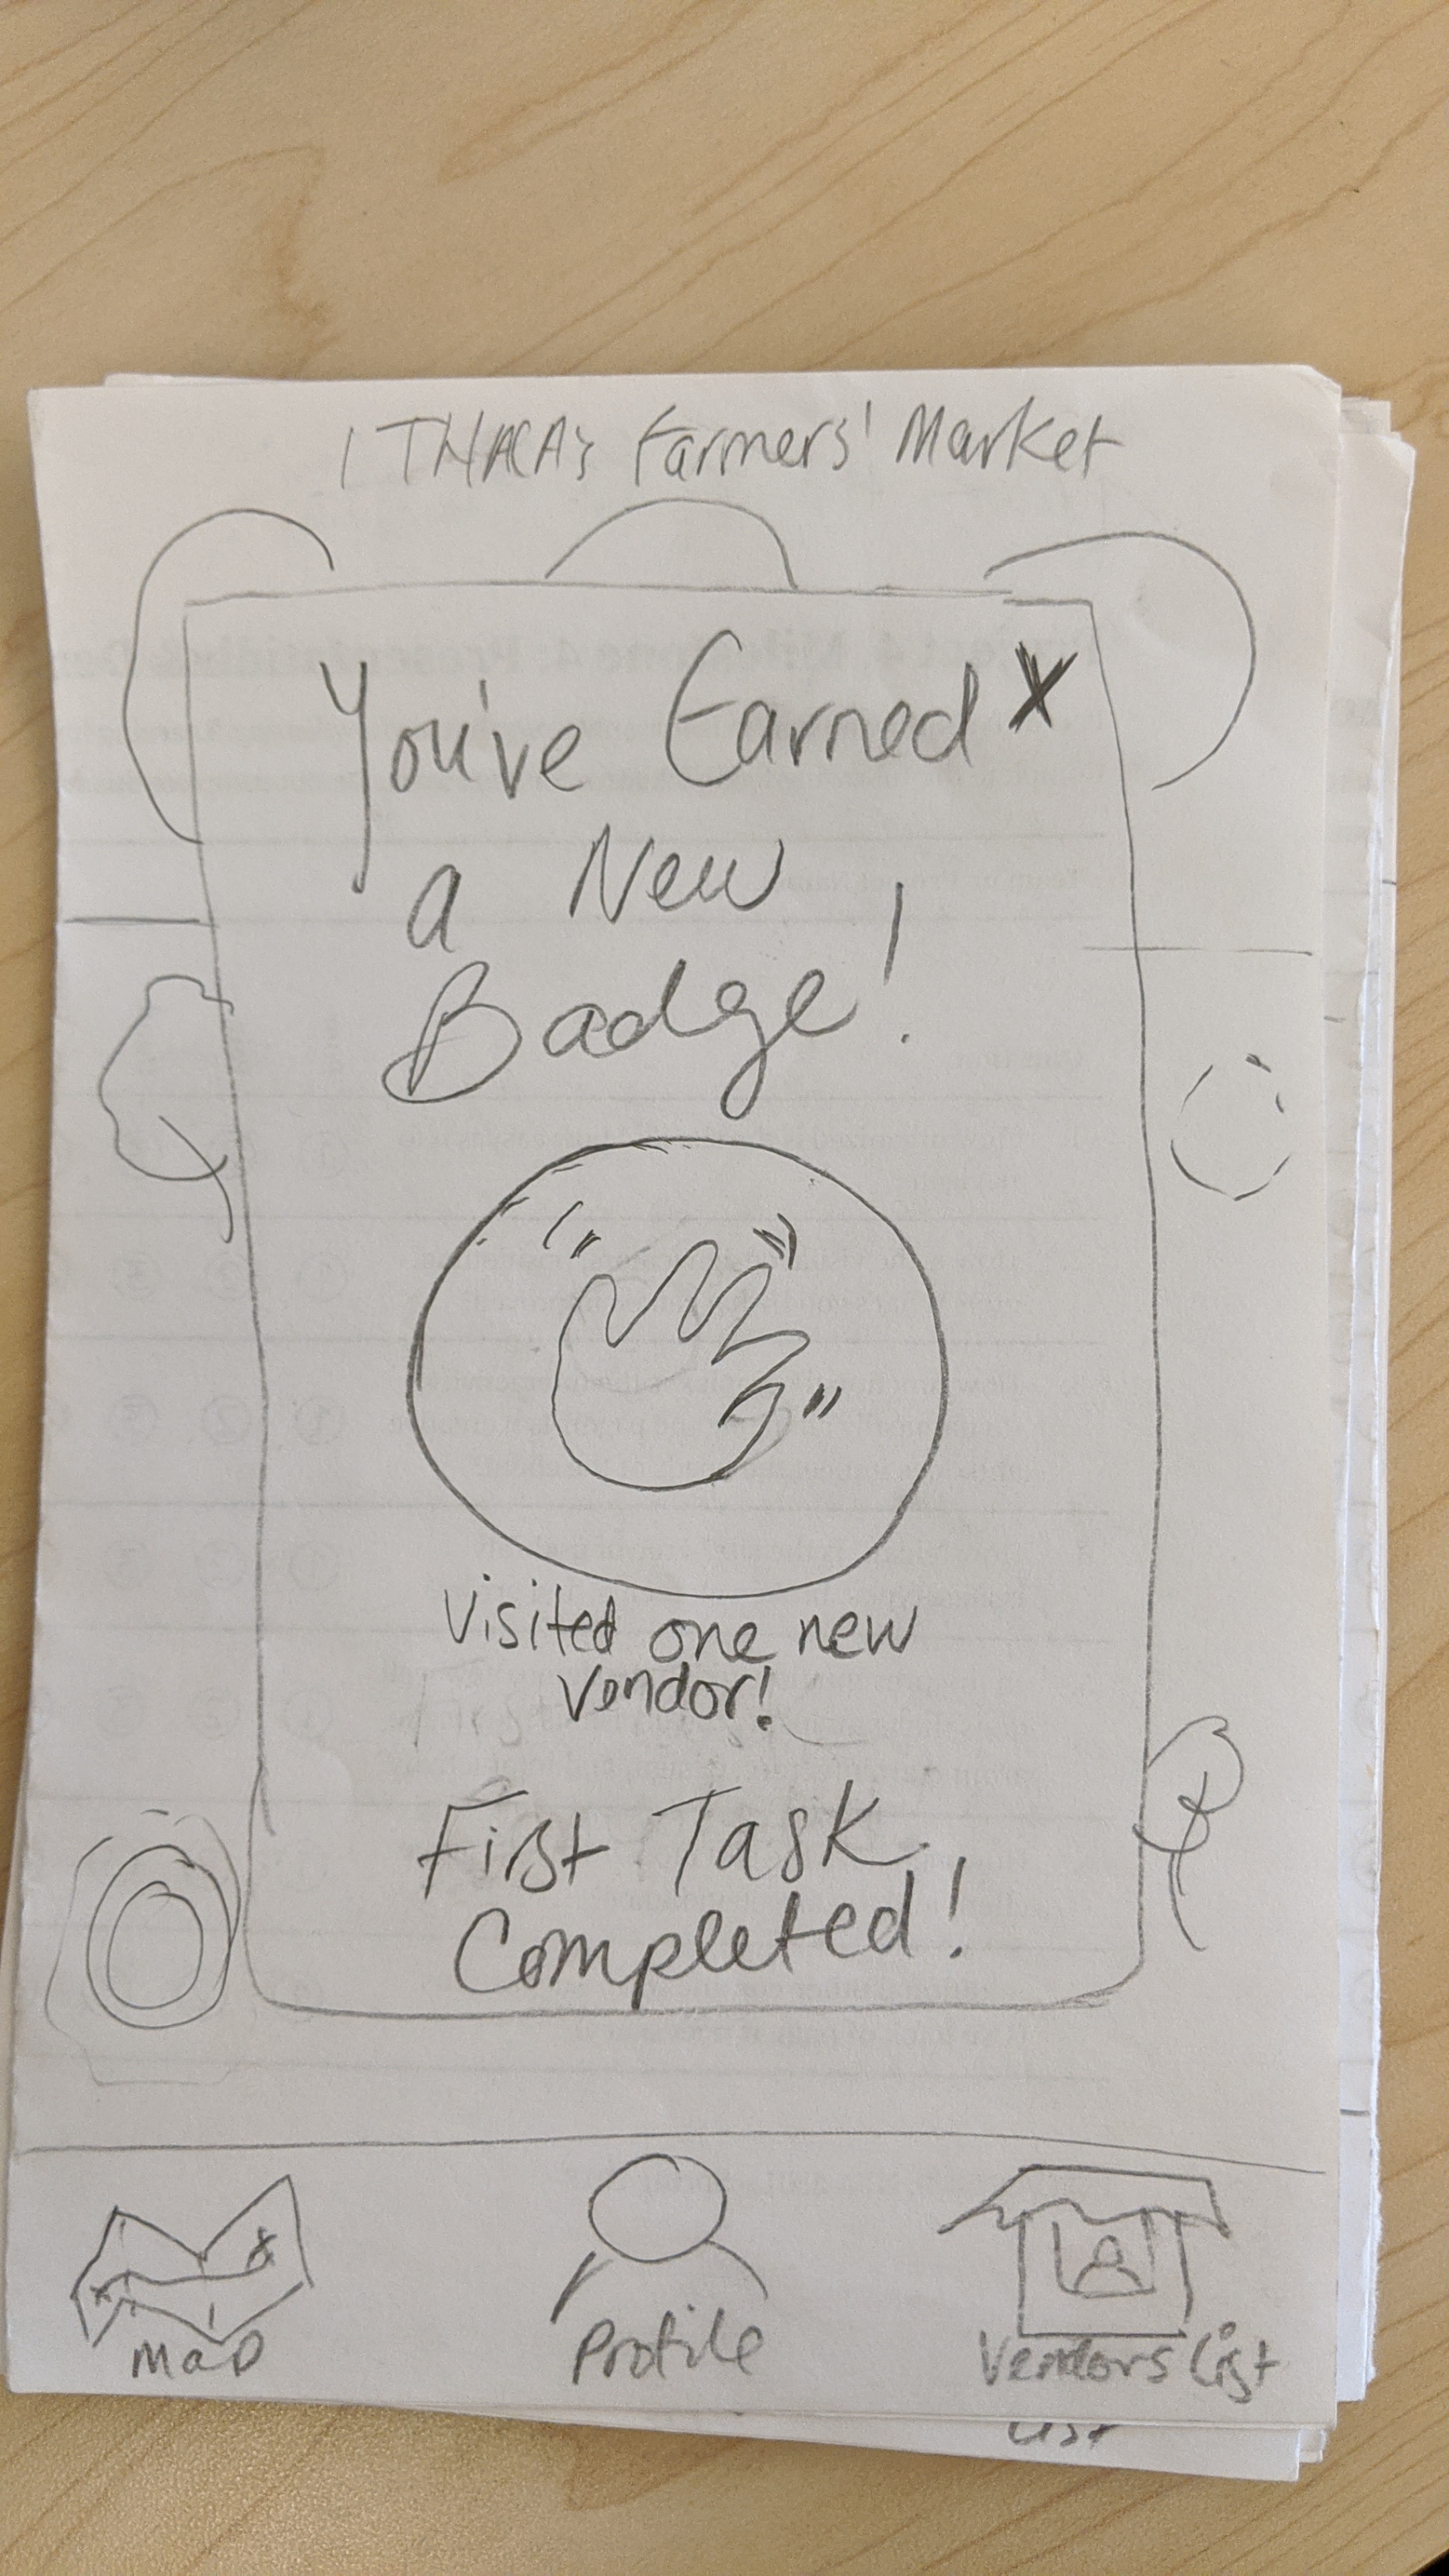 ITHACA's Farmers' Market
You've Earned X
a New
Badge!
Visited one new
Vendor!
First Task
Completed!
Map
Profile
Vendors List
List